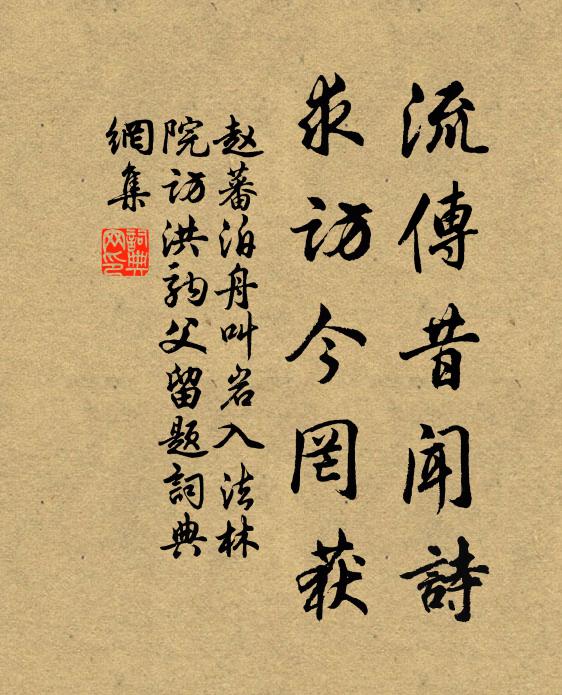 流傳昔聞詩
求訪今罔获
赵蕃泊舟叫岩入法林
院访洪駒父留题詞典
網集
詞典
网印